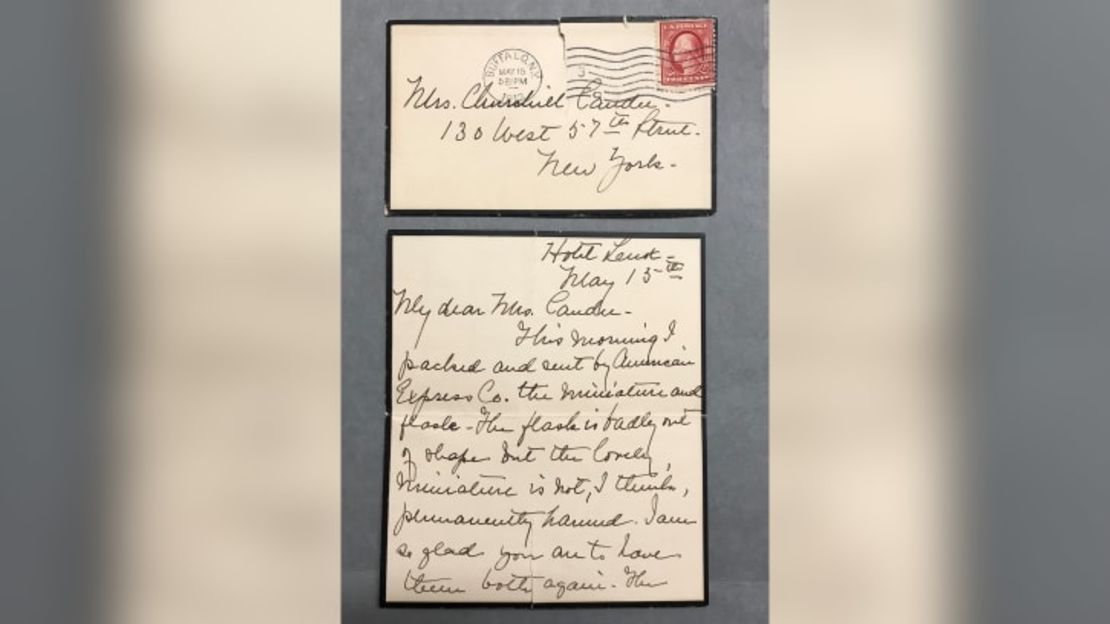 BUFFALO, N.Y.
MAY 15
5 30 PM
1912
U.S. POSTAGE
Mrs. Churchill Candee.
130 West 57th Street.
New York.
Hotel Lenox-
May 15th
My dear Mrs. Candee-
This morning I
packed and sent by American
Express Co. the miniature and
flask - The flask is badly out
of shape but the lovely
miniature is not, I think,
permanently harmed. I am
so glad you are to have
them both again. The